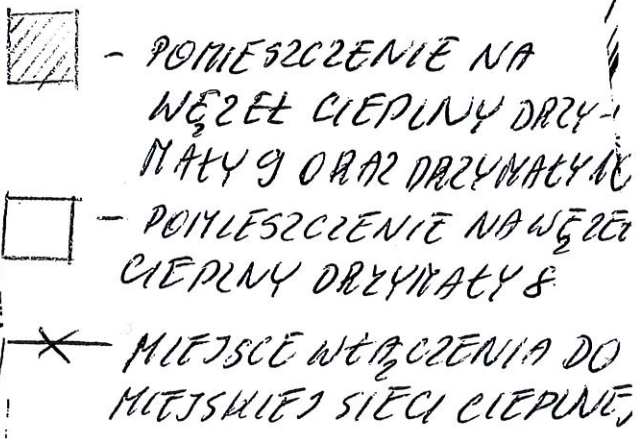 - POMIESZCZENIE NA
WĘZEŁ CIEPLNY DRZY-
MAŁY 9 ORAZ DRZYMAŁY 10
- POMIESZCZENIE NA WĘZEŁ
CIEPLNY DRZYMAŁY 8
- MIEJSCE WŁĄCZENIA DO
MIEJSKIEJ SIECI CIEPLNEJ